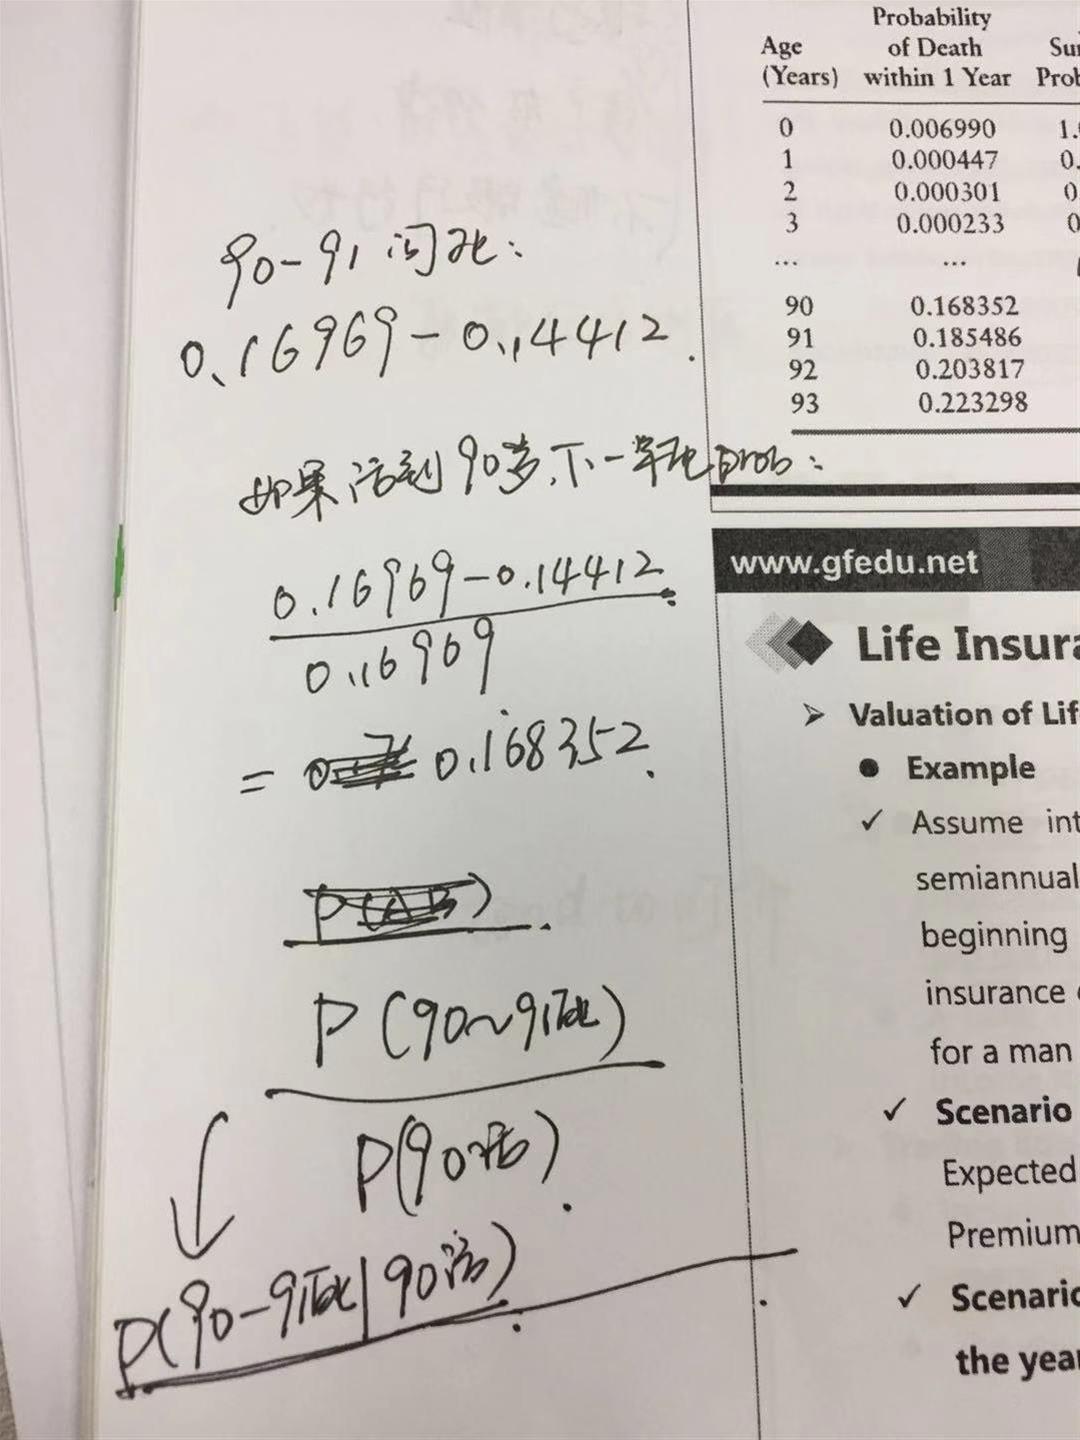 90-91间死:
0.16969-0.14412.
如果活到90岁,下一年死prob:
0.16969-0.14412
0.16969
= 0.168352.
P(AB)
P(90~91死)
P(90活).
P(90-91死|90活)
Probability
Age of Death Sur
(Years) within 1 Year Prob
0 0.006990 1.
1 0.000447 0.
2 0.000301 0
3 0.000233 0
... ...
90 0.168352
91 0.185486
92 0.203817
93 0.223298
www.gfedu.net
Life Insura
➢ Valuation of Lif
● Example
✓ Assume int
semiannual
beginning
insurance
for a man
✓ Scenario
Expected
Premium
✓ Scenario
the yea